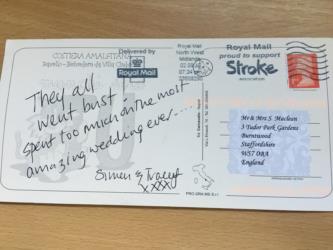 COSTIERA AMALFITANA
Ravello - Belvedere da Villa Cimbrone
Delivered by
Royal Mail
Royal Mail
North West
Midlands
Royal Mail
proud to support
Stroke
association
They all
went bust!
Spent too much on the most
amazing wedding ever....
Simon & Tracey
xxxx
Mr & Mrs S. Maclean
3 Tudor Park Gardens
Burntwood
Staffordshire
WS7 0BA
England